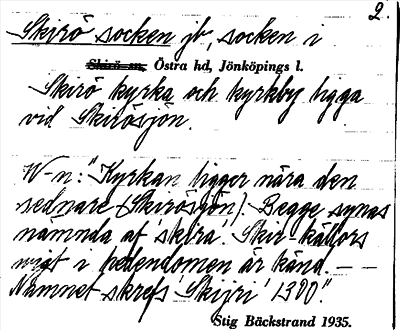 2.
Skirö socken jb, socken i
Skirö sn, Östra hd, Jönköpings l.
Skirö kyrka och kyrkby ligga
vid Skirösjön.
W-n: "Kyrkan ligger nära den
sednare (Skirösjön). Begge synas
nämnda af skira. Skir-källors
i hedendomen är känd. — —
Namnet skrefs 'Skijri' 1300".
Stig Bäckstrand 1935.